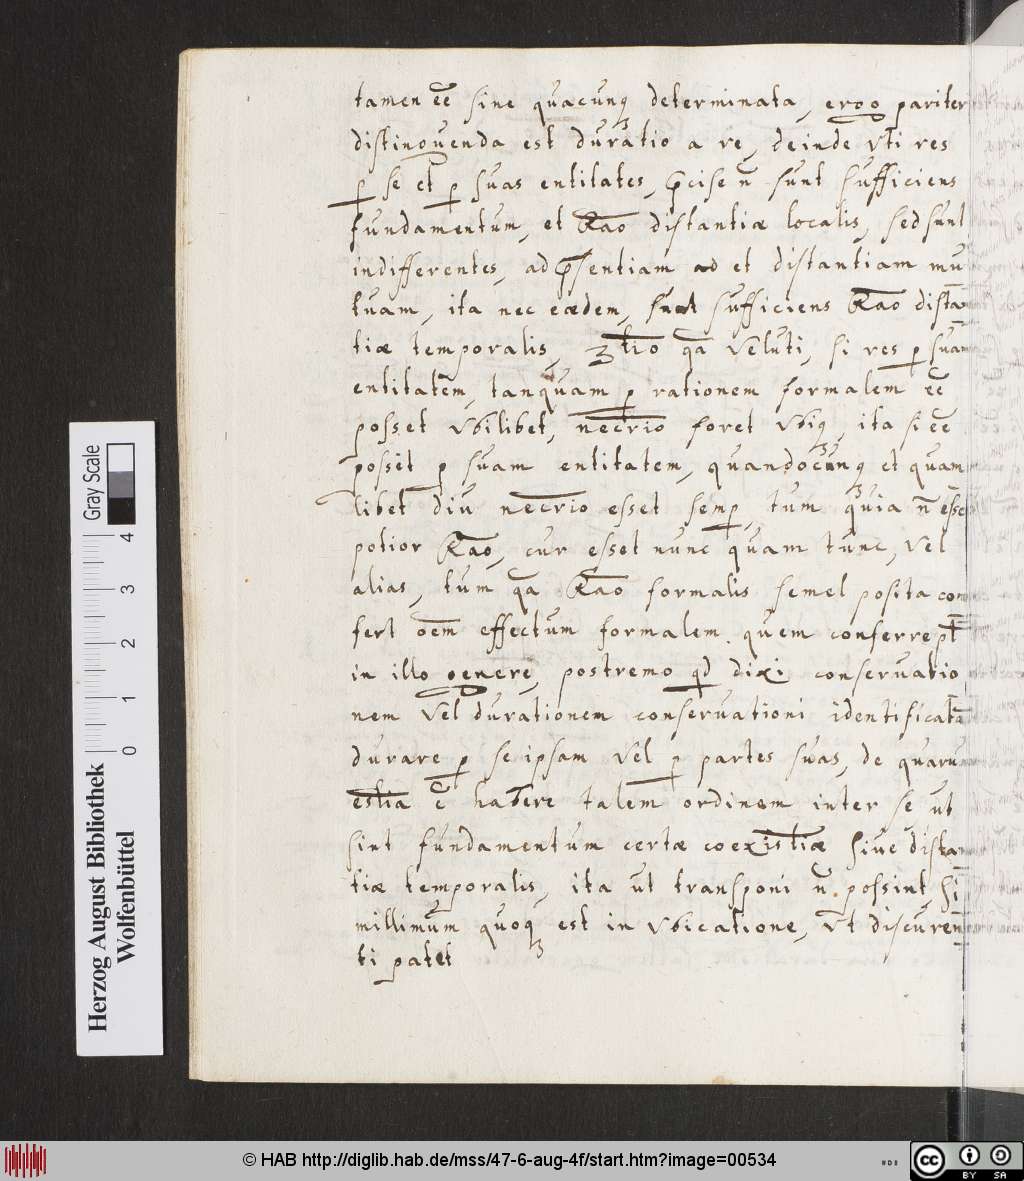 tamen eē sine quacunq; determinata, ergo pariter
distinguenda est duratio a re, deinde vti res
p se et p suas entitates, p̄cise n̄ sunt sufficiens
fundamentum, et Rāo distantiæ localis, sed sunt
indifferentes, ad p̄sentiam ad et distantiam mu
tuam, ita nec eædem, sunt sufficiens Rāo dista
tiæ temporalis, 3tio qa veluti, si res p suam
entitatem, tanquam p rationem formalem eē
posset vbilibet, necrio foret vbiq;, ita si eē
posset p suam entitatem, quandocunq; et quam
libet diu necrio esset semp, tum quia n̄ esse
potior Rāo, cur esset nunc quam tunc, vel
alias, tum qa Rāo formalis semel posita con
fert oēm effectum formalem quem conferre pt
in illo genere, postremo qd dixi conservatio
nem vel durationem conservationi identificatā
durare p se ipsam vel p partes suas, de quarū
estia ē habere talem ordinem inter se ut
sint fundamentum certæ coexistiæ sive dista
tiæ temporalis, ita ut transponi n̄ possint, si
millimum quoq; est in vbicatione, vt discuren
ti patet
Herzog August Bibliothek
Wolfenbüttel
Gray Scale
0 1 2 3 4
© HAB http://diglib.hab.de/mss/47-6-aug-4f/start.htm?image=00534
cc BY SA